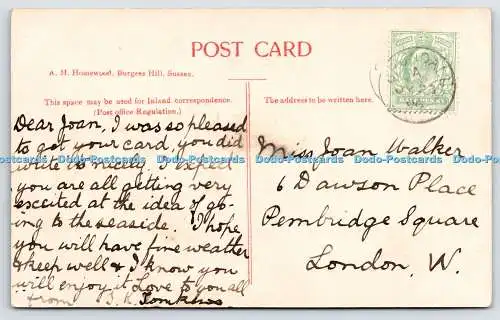 POST CARD
A. H. Homewood, Burgess Hill, Sussex.
This space may be used for Inland correspondence.
(Post office Regulation.)
The address to be written here.
Dear Joan, I was so pleased
to get your card, you did
write so nicely. I expect
you are all getting very
excited at the idea of go-
ing to the seaside. I hope
you will have fine weather
& keep well & I know you
will enjoy it Love to you all
from
Miss Joan Walker
6 Dawson Place
Pembridge Square
London, W.
Dodo-Postcards Dodo-Postcards Dodo-Postcards Dodo-Postcards Dodo-Postcards Dodo-Postcards